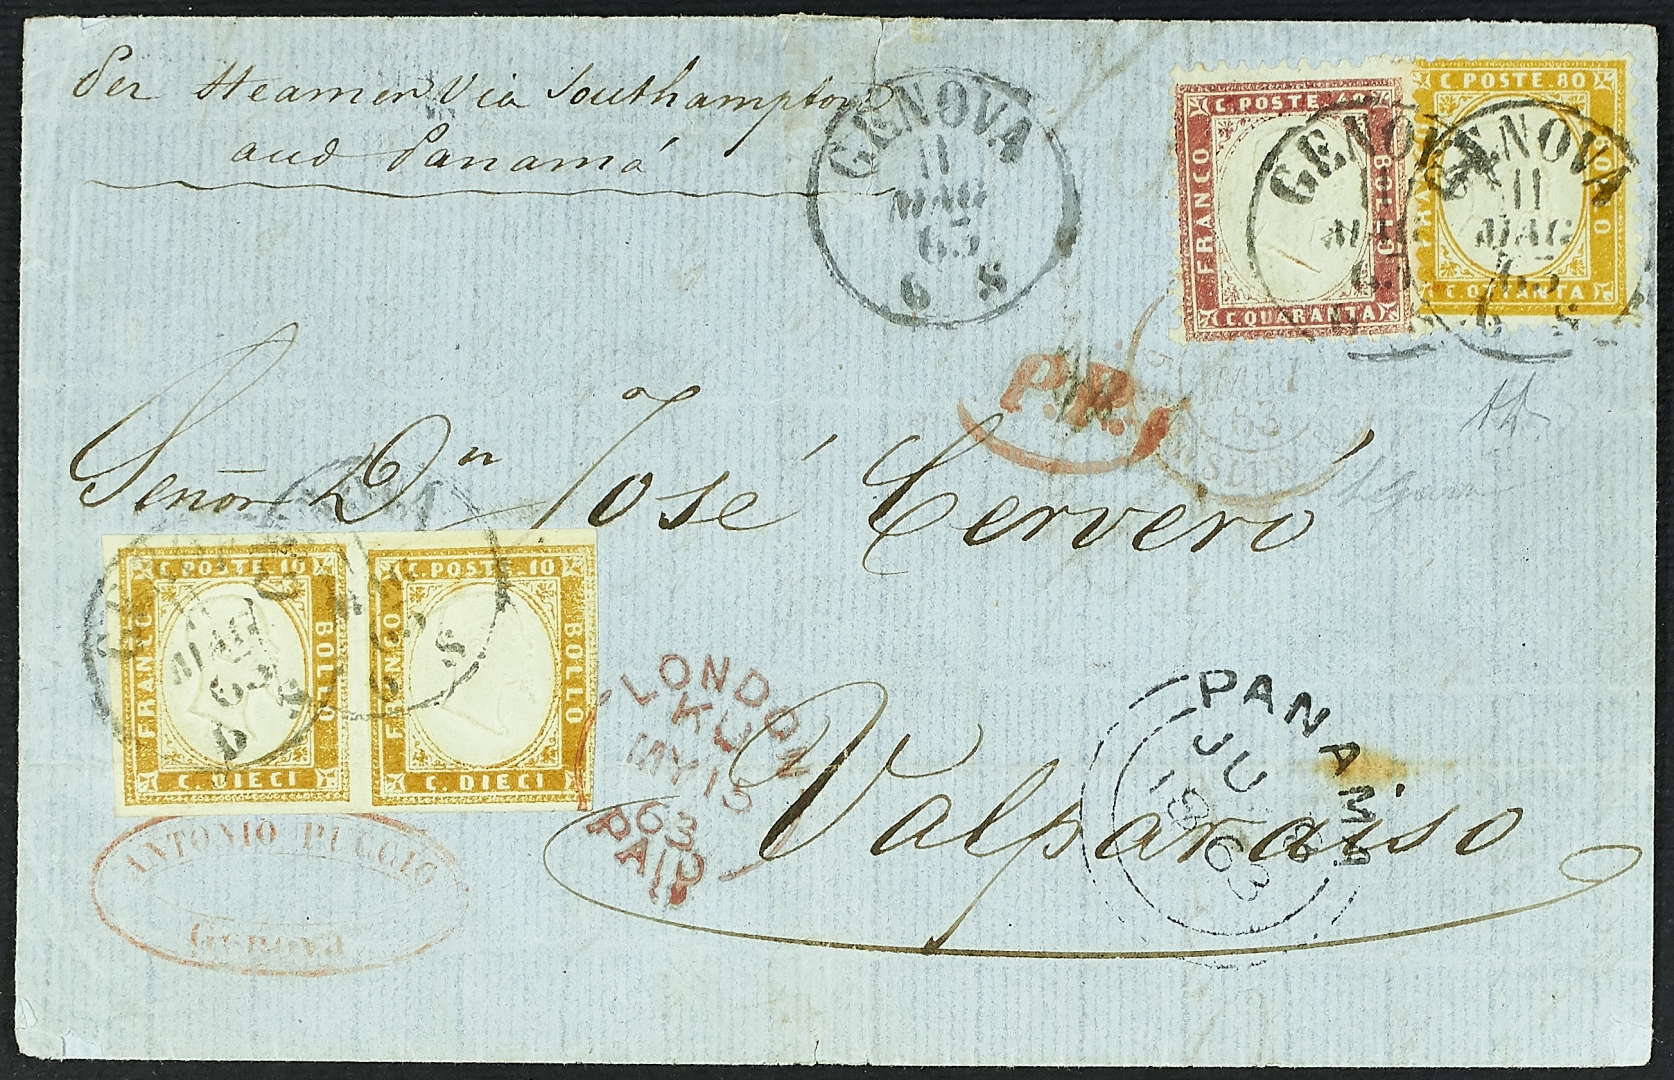 Per Steamer Via Southampton
and Panamá
GENOVA
11
MAG
63
6 S
C. POSTE 40
FRANCO
BOLLO
C. QUARANTA
GENOVA
C. POSTE 80
FRANCO
BOLLO
C. OTTANTA
GENOVA
11
MAG
63
6 S
P.P.
Señor Dn José Cerveró
C. POSTE 10
FRANCO
BOLLO
C. DIECI
MAG
63
C. POSTE 10
FRANCO
BOLLO
C. DIECI
63
6 S
LONDON
KU
MY 15
63
PAID
Valparaiso
PANAMA
JU 8
1863
ANTONIO PUCCIO
GENOVA